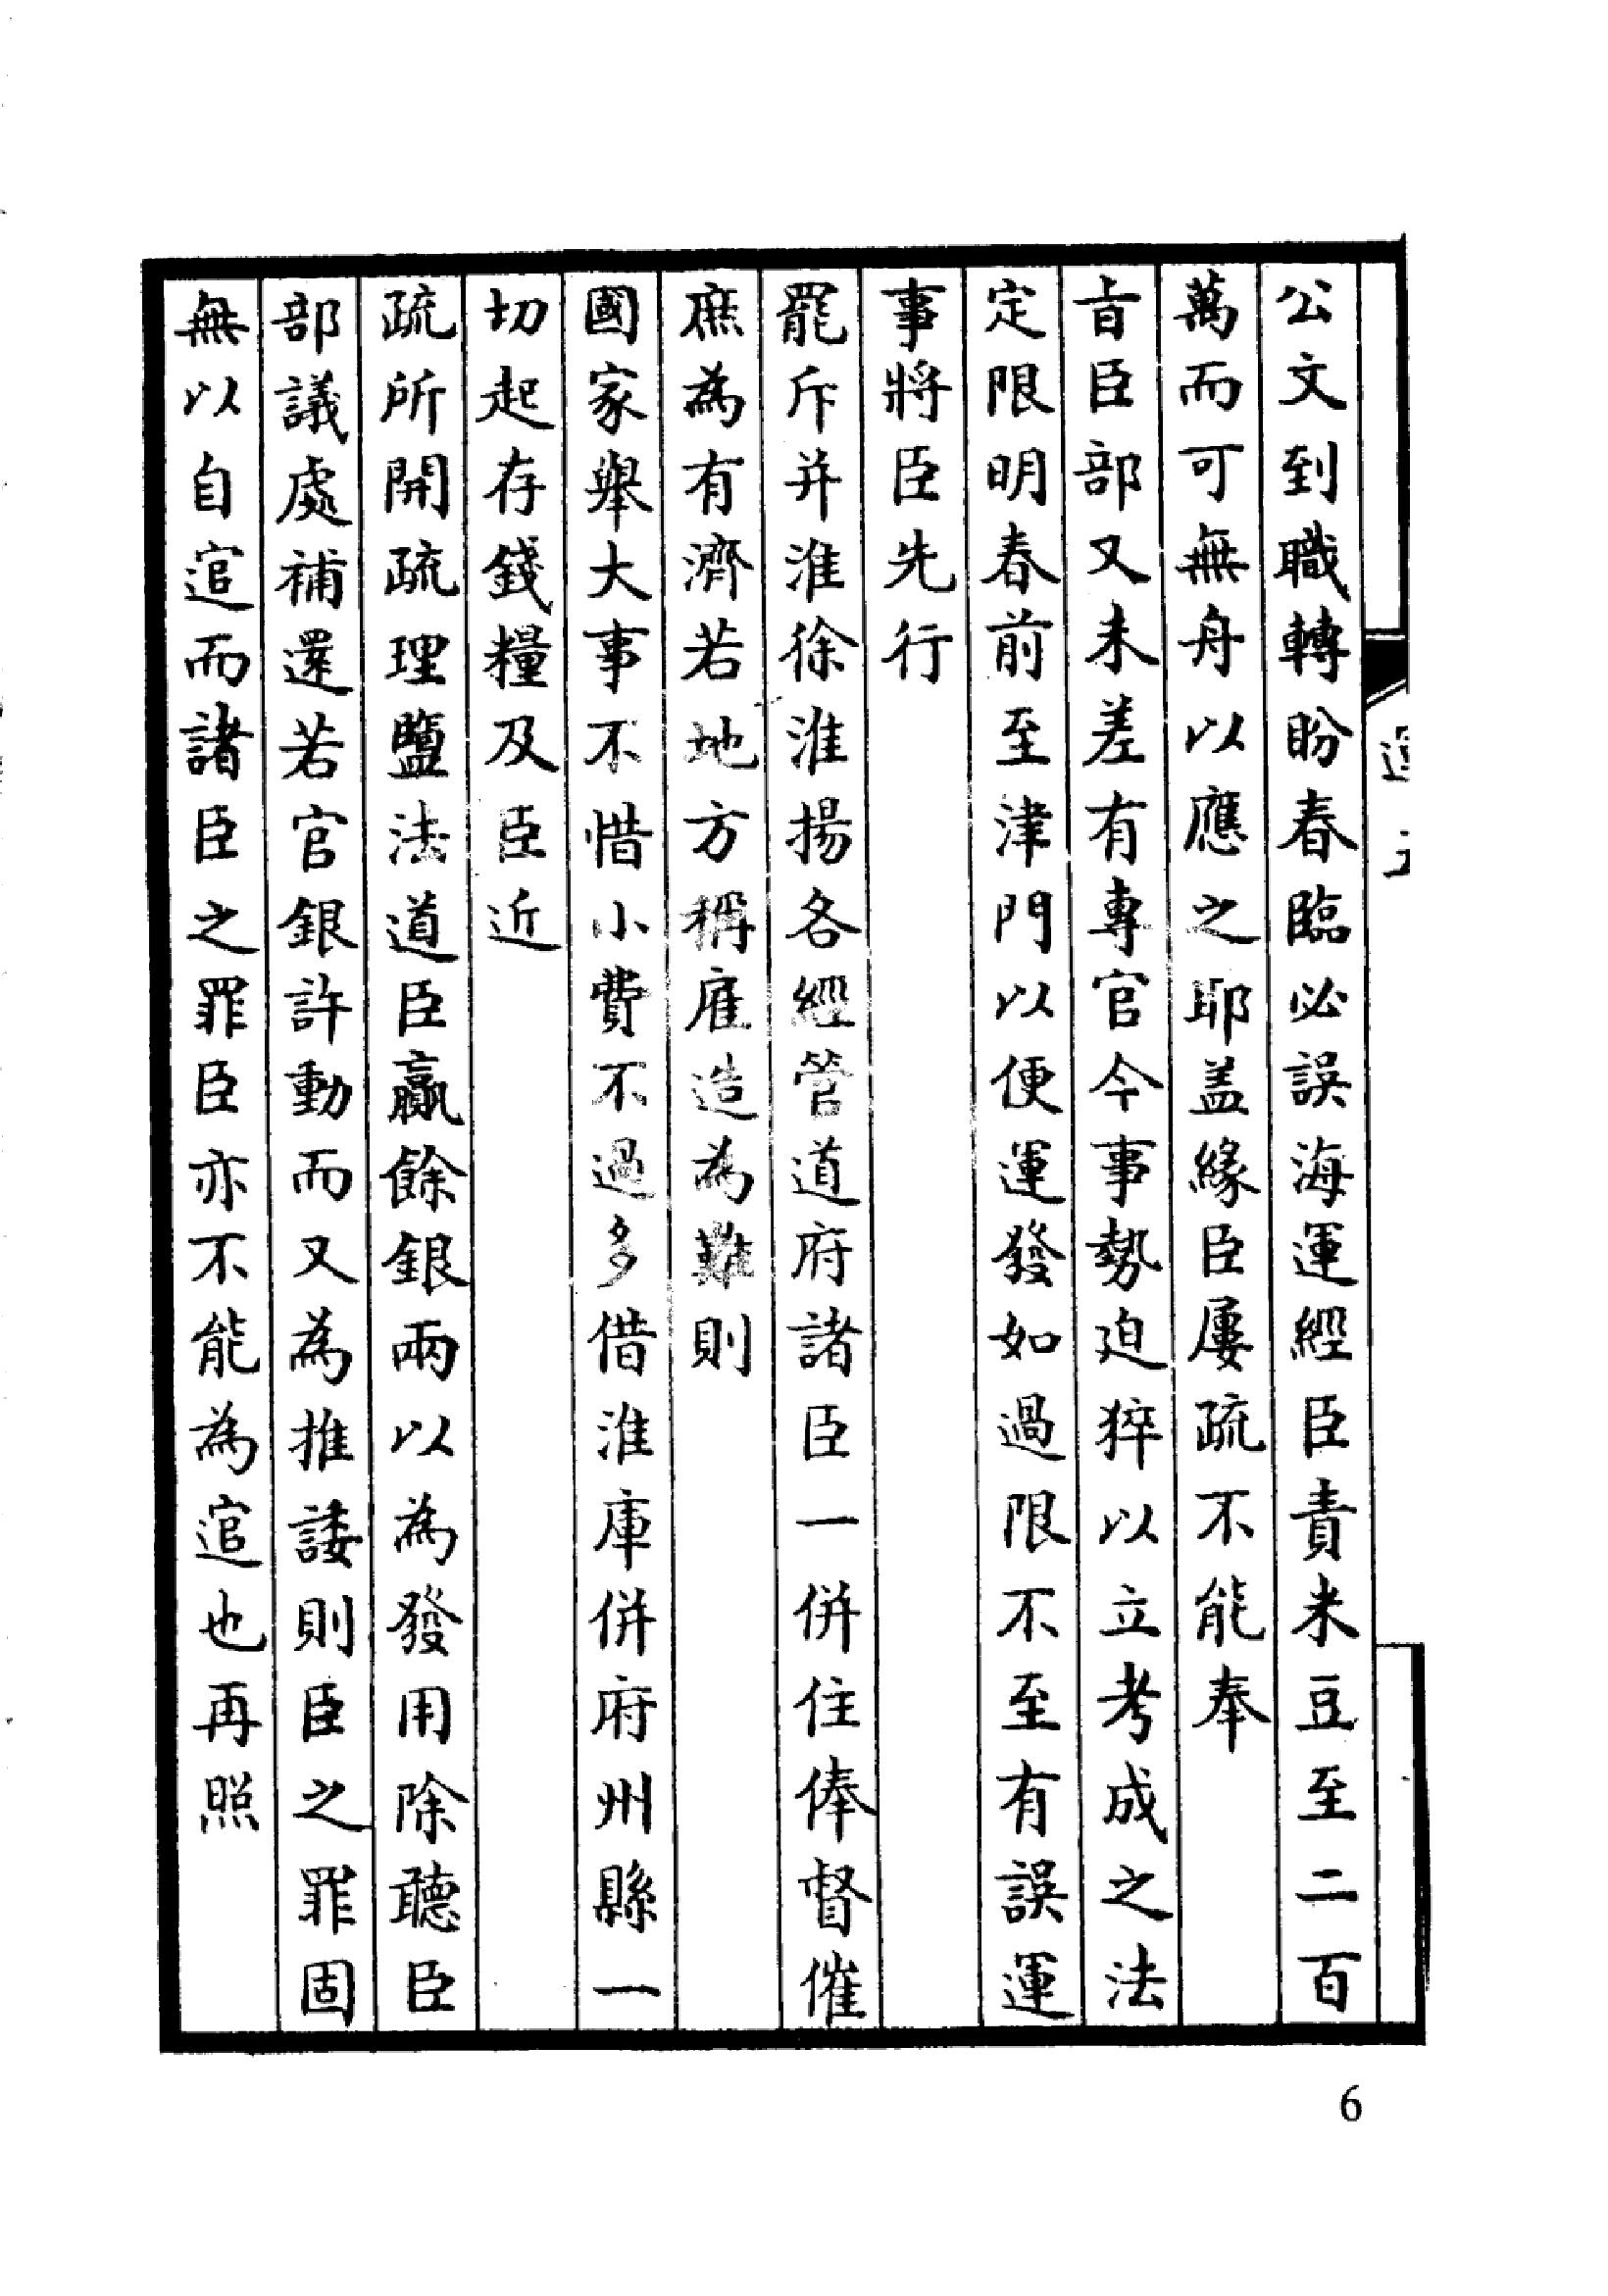 公文到職轉盼春臨必誤海運經臣責米豆至二百
萬而可無舟以應之耶盖緣臣屢疏不能奉
旨臣部又未差有專官今事勢迫猝以立考成之法
定限明春前至津門以便運發如過限不至有誤運
事將臣先行
罷斥并淮徐淮揚各經管道府諸臣一併住俸督催
庶為有濟若地方稱雇造為難則
國家舉大事不惜小費不過多借淮庫併府州縣一
切起存錢糧及臣近
疏所開疏理鹽法道臣羸餘銀兩以為發用除聽臣
部議處補還若官銀許動而又為推諉則臣之罪固
無以自逭而諸臣之罪臣亦不能為逭也再照
6